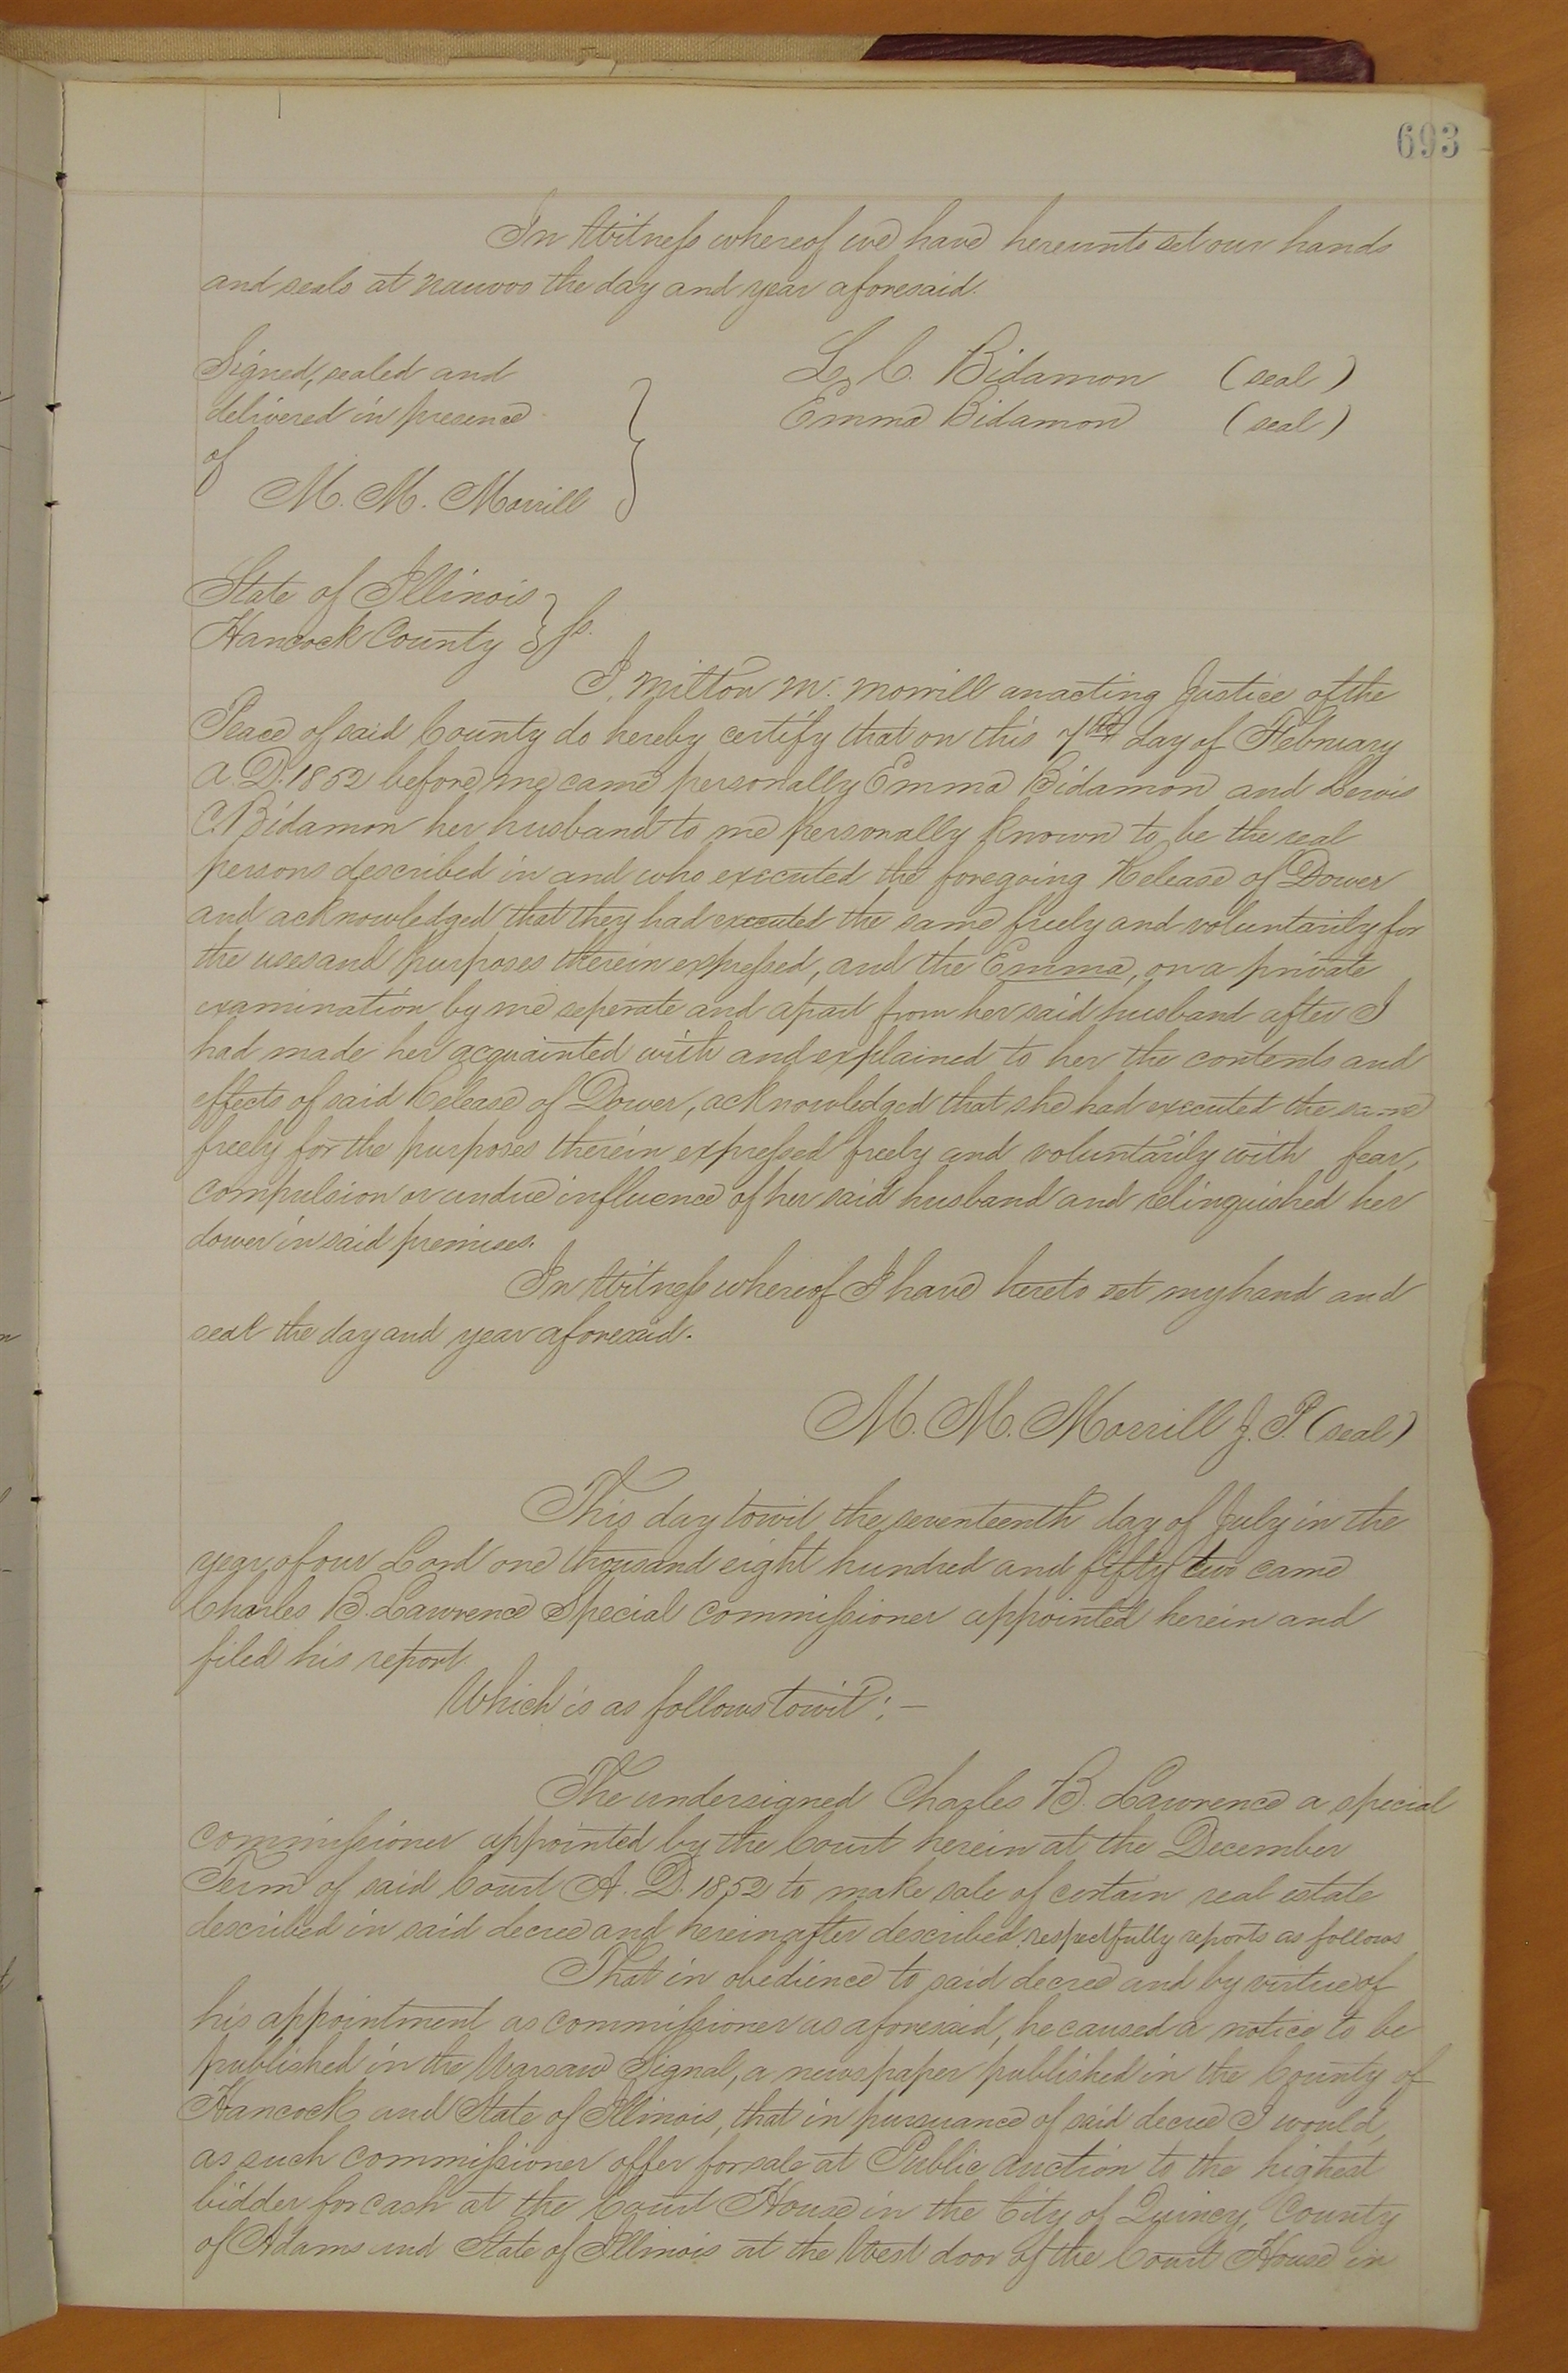 693
In Witness whereof we have hereunto set our hands
and seals at Nauvoo the day and year aforesaid.
Signed, sealed and
delivered in presence
of
M. M. Morrill
L. C. Bidamon (seal)
Emma Bidamon (seal)
State of Illinois
Hancock County ss.
I, Milton M. Morrill an acting Justice of the
Peace of said County do hereby certify that on this 7th day of February
A.D. 1852 before me came personally Emma Bidamon and Lewis
C. Bidamon her husband to me personally known to be the real
persons described in and who executed the foregoing Release of Dower
and acknowledged that they had executed the same freely and voluntarily for
the uses and purposes therein expressed, and the Emma, on a private
examination by me seperate and apart from her said husband after I
had made her acquainted with and explained to her the contents and
effects of said Release of Dower, acknowledged that she had executed the same
freely for the purposes therein expressed freely and voluntarily with fear,
compulsion or undue influence of her said husband and relinquished her
dower in said premises.
In Witness whereof I have hereto set my hand and
seal the day and year aforesaid.
M. M. Morrill J. P. (seal)
This day towit the seventeenth day of July in the
year of our Lord one thousand eight hundred and fifty two came
Charles B. Lawrence Special commissioner appointed herein and
filed his report.
Which is as follows towit: —
The undersigned Charles B. Lawrence a special
commissioner appointed by the Court herein at the December
Term of said Court A. D. 1852 to make sale of certain real estate
described in said decree and hereinafter described respectfully reports as follows
That in obedience to said decree and by virtue of
his appointment as commissioner as aforesaid, he caused a notice to be
published in the Warsaw Signal, a newspaper published in the County of
Hancock and State of Illinois, that in pursuance of said decree I would,
as such commissioner offer for sale at Public Auction to the highest
bidder for cash at the Court House in the City of Quincy, County
of Adams and State of Illinois at the West door of the Court House in